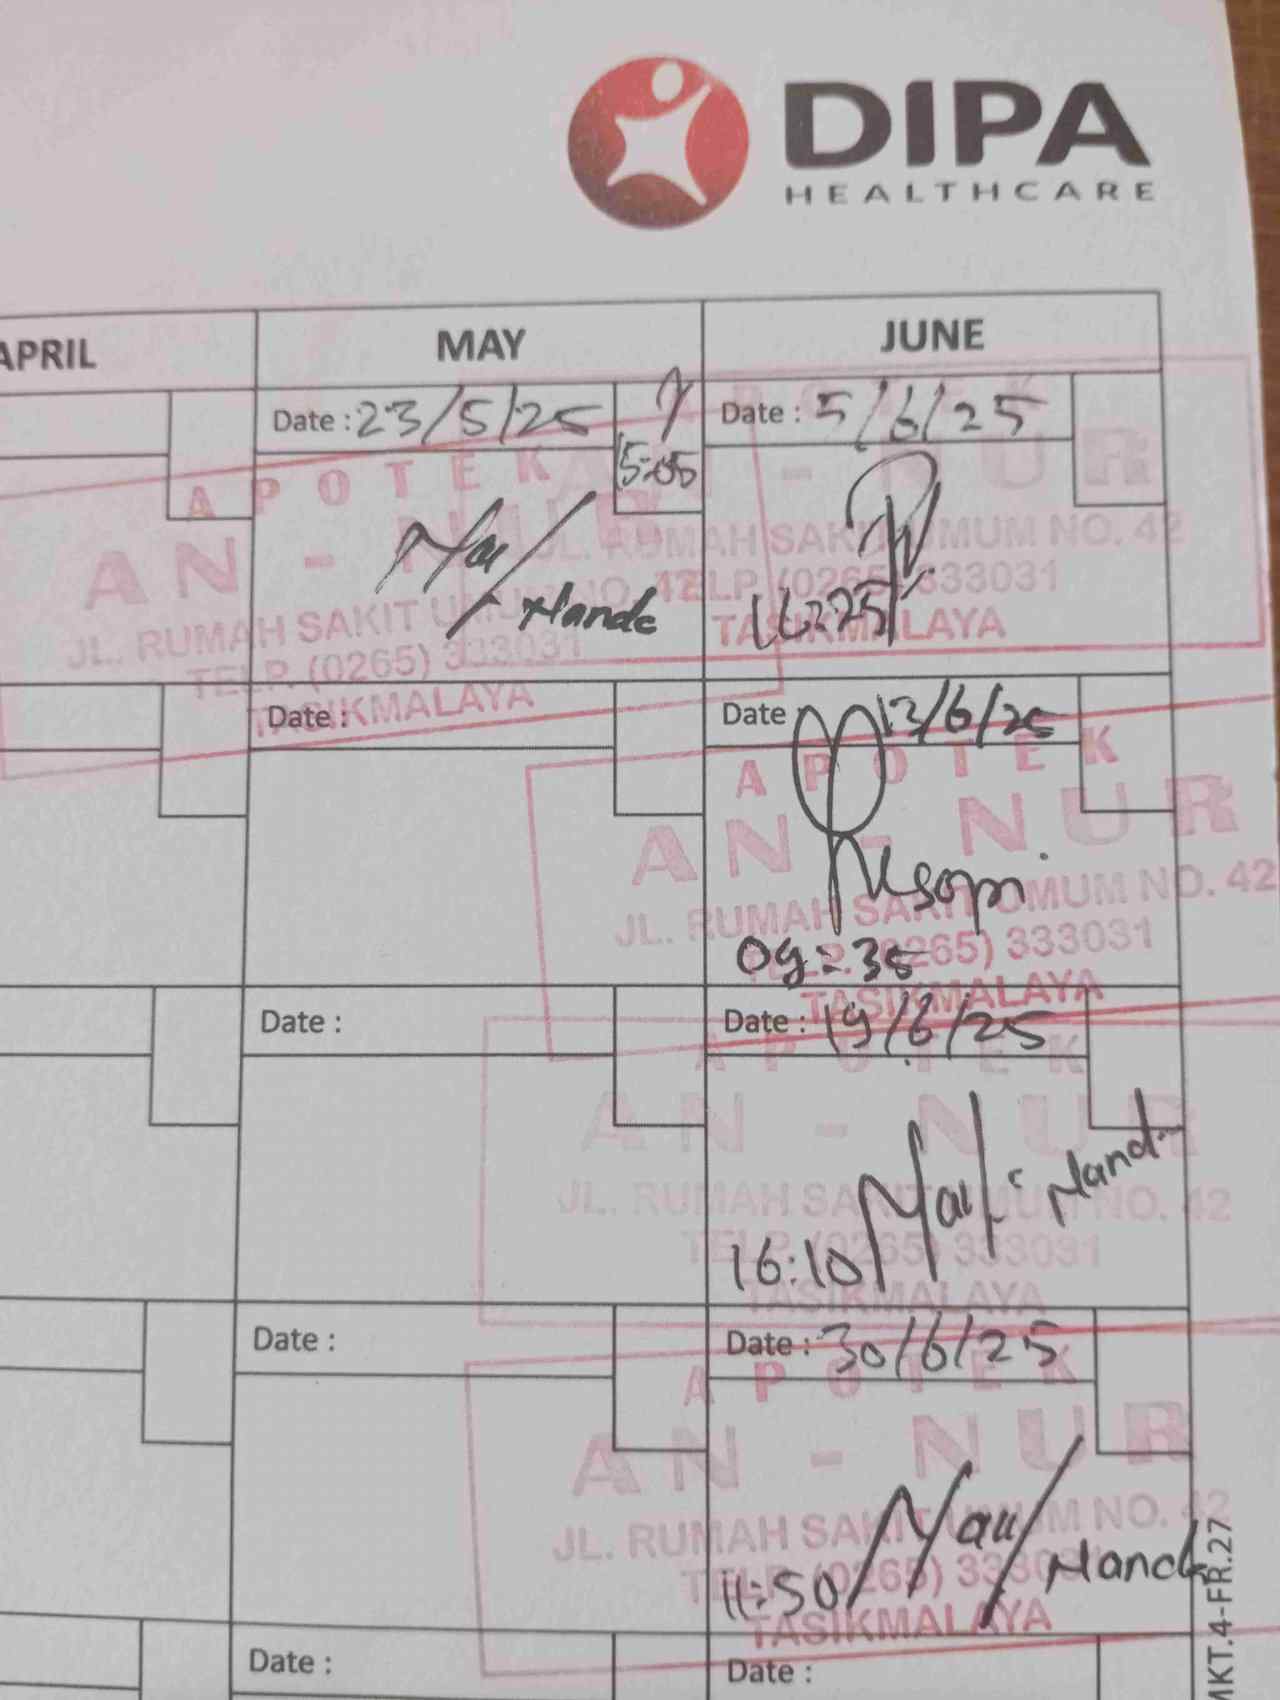 DIPA
HEALTHCARE
APRIL
MAY
JUNE
Date : 23/5/25
15:05
Date : 5/6/25
APOTEK
AN - NUR
JL. RUMAH SAKIT UMUM NO. 42
TELP. (0265) 333031
TASIKMALAYA
Nande
AN - NUR
JL. RUMAH SAKIT UMUM NO. 42
TELP. (0265) 333031
TASIKMALAYA
16:25
Date :
Date 13/6/25
APOTEK
AN - NUR
JL. RUMAH SAKIT UMUM NO. 42
TELP. (0265) 333031
TASIKMALAYA
09:35
Date :
Date : 19/6/25
APOTEK
AN - NUR
JL. RUMAH SAKIT UMUM NO. 42
TELP. (0265) 333031
TASIKMALAYA
16:10
Date :
Date : 30/6/25
APOTEK
AN - NUR
JL. RUMAH SAKIT UMUM NO. 42
TELP. (0265) 333031
TASIKMALAYA
11:50
Date :
Date :
MKT.4-FR.27